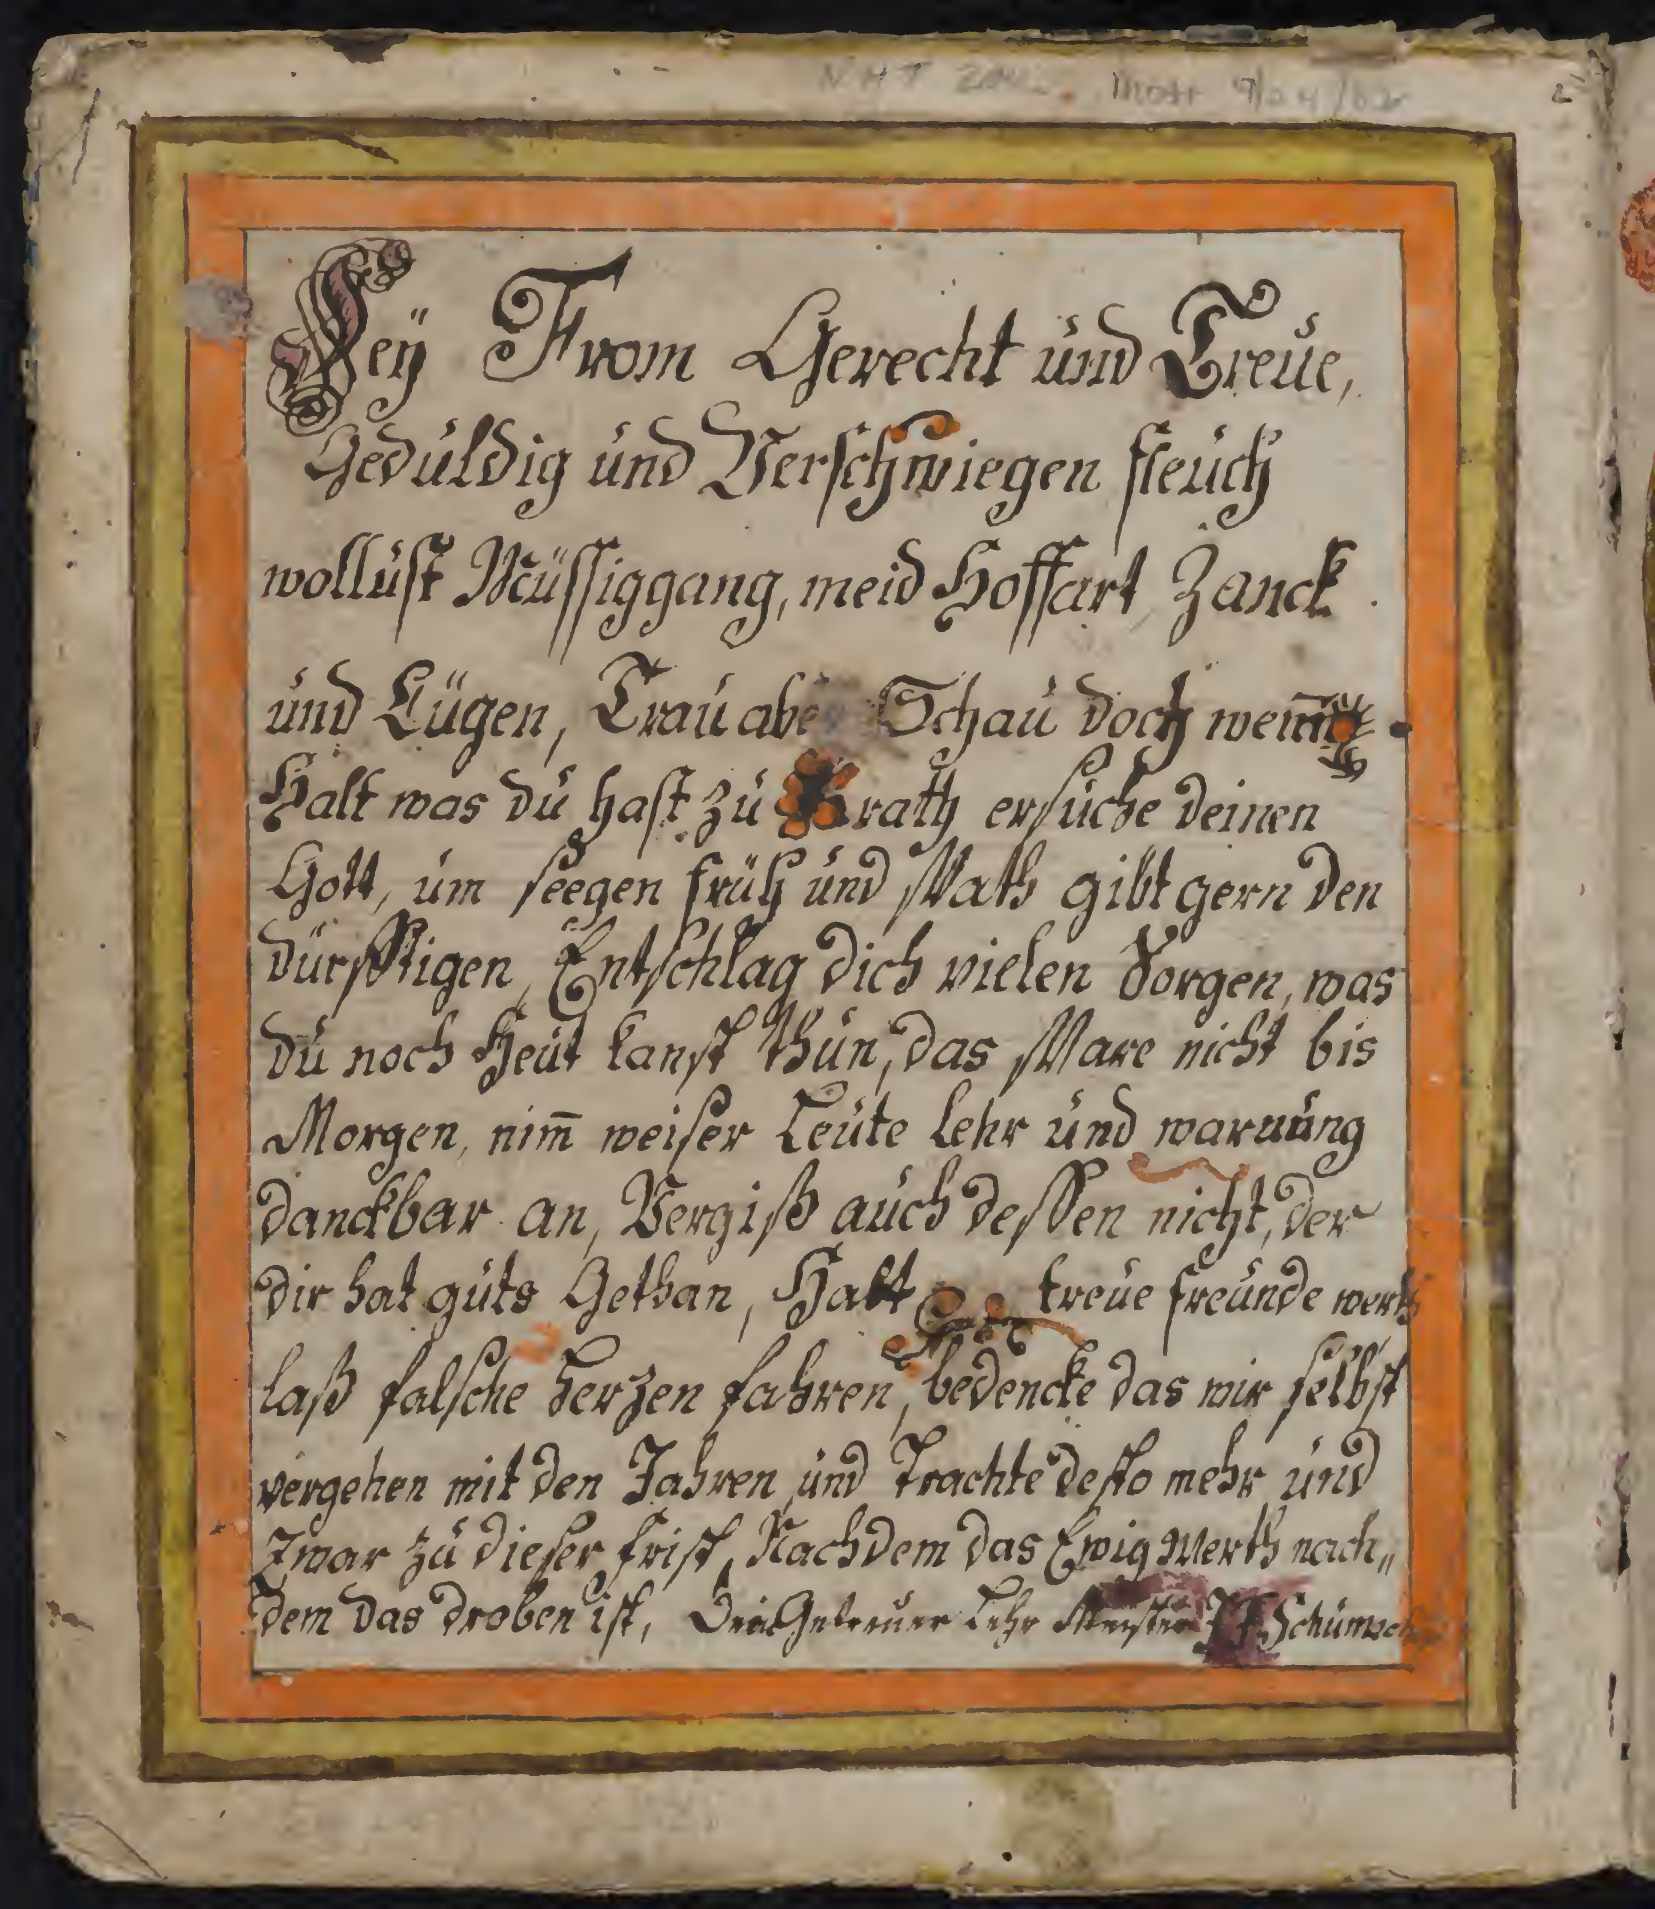 2
Seÿ From Gerecht und Treue,
Geduldig und Verschwiegen fleuch
wollust Müssiggang, meid Hoffart Zanck
und Lügen, Trau aber Schau doch wem̄
Halt was du hast zu rath ersuche deinen
Gott, um seegen früh und Spath gibt gern den
dürfftigen, Entschlag dich vielen Sorgen, was
du noch Heut kanst thun, das Spare nicht bis
Morgen, nim̄ weiser Leute lehr und warnung
danckbar an, Vergiß auch dessen nicht, der
dir hat guts Gethan, Halt treue freunde werth
laß falsche herzen fahren, bedencke das wir selbst
vergehen mit den Jahren und Trachte desto mehr und
Zwar zu dieser frist, Nachdem das Ewig Werth nach„
dem das droben ist, Dein Getreuer Lehr Meister J F Schumach